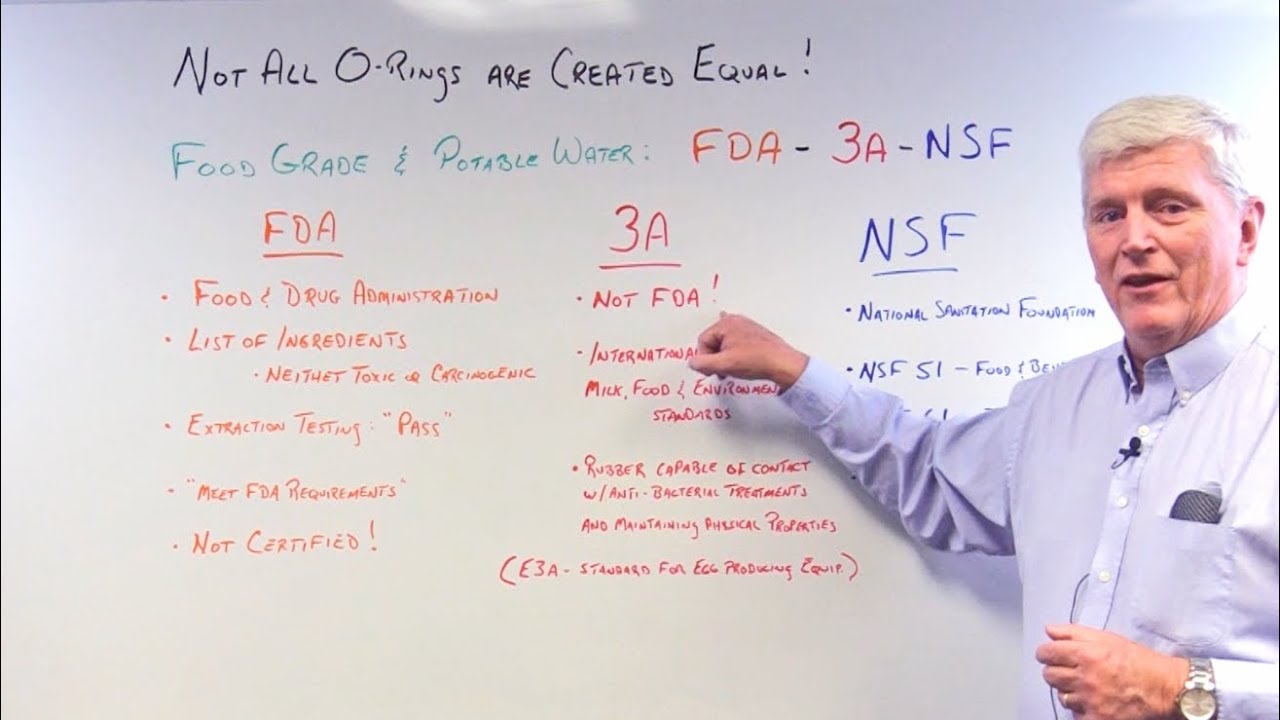 NOT ALL O-RINGS ARE CREATED EQUAL!
FOOD GRADE & POTABLE WATER: FDA - 3A - NSF
FDA
• FOOD & DRUG ADMINISTRATION
• LIST OF INGREDIENTS
• NEITHET TOXIC OR CARCINOGENIC
• EXTRACTION TESTING: "PASS"
• "MEET FDA REQUIREMENTS"
• NOT CERTIFIED!
3A
• NOT FDA!
• INTERNATIONA
MILK, FOOD & ENVIRONMEN
STANDARDS
• RUBBER CAPABLE OF CONTACT
W/ ANTI-BACTERIAL TREATMENTS
AND MAINTAINING PHYSICAL PROPERTIES
(E3A - STANDARD FOR EGG PRODUCING EQUIP.)
NSF
• NATIONAL SANITATION FOUNDATION
• NSF 51 - FOOD & BEV